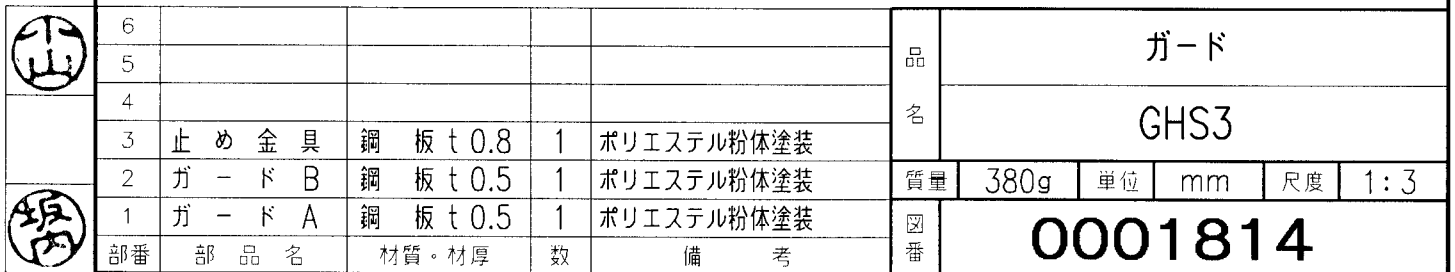 小山
坂内
6
5
4
3 止め金具 鋼 板 t 0.8 1 ポリエステル粉体塗装
2 ガードB 鋼 板 t 0.5 1 ポリエステル粉体塗装
1 ガードA 鋼 板 t 0.5 1 ポリエステル粉体塗装
部番 部品名 材質・材厚 数 備考
品名 ガード
GHS3
質量 380g 単位 mm 尺度 1:3
図番 0001814